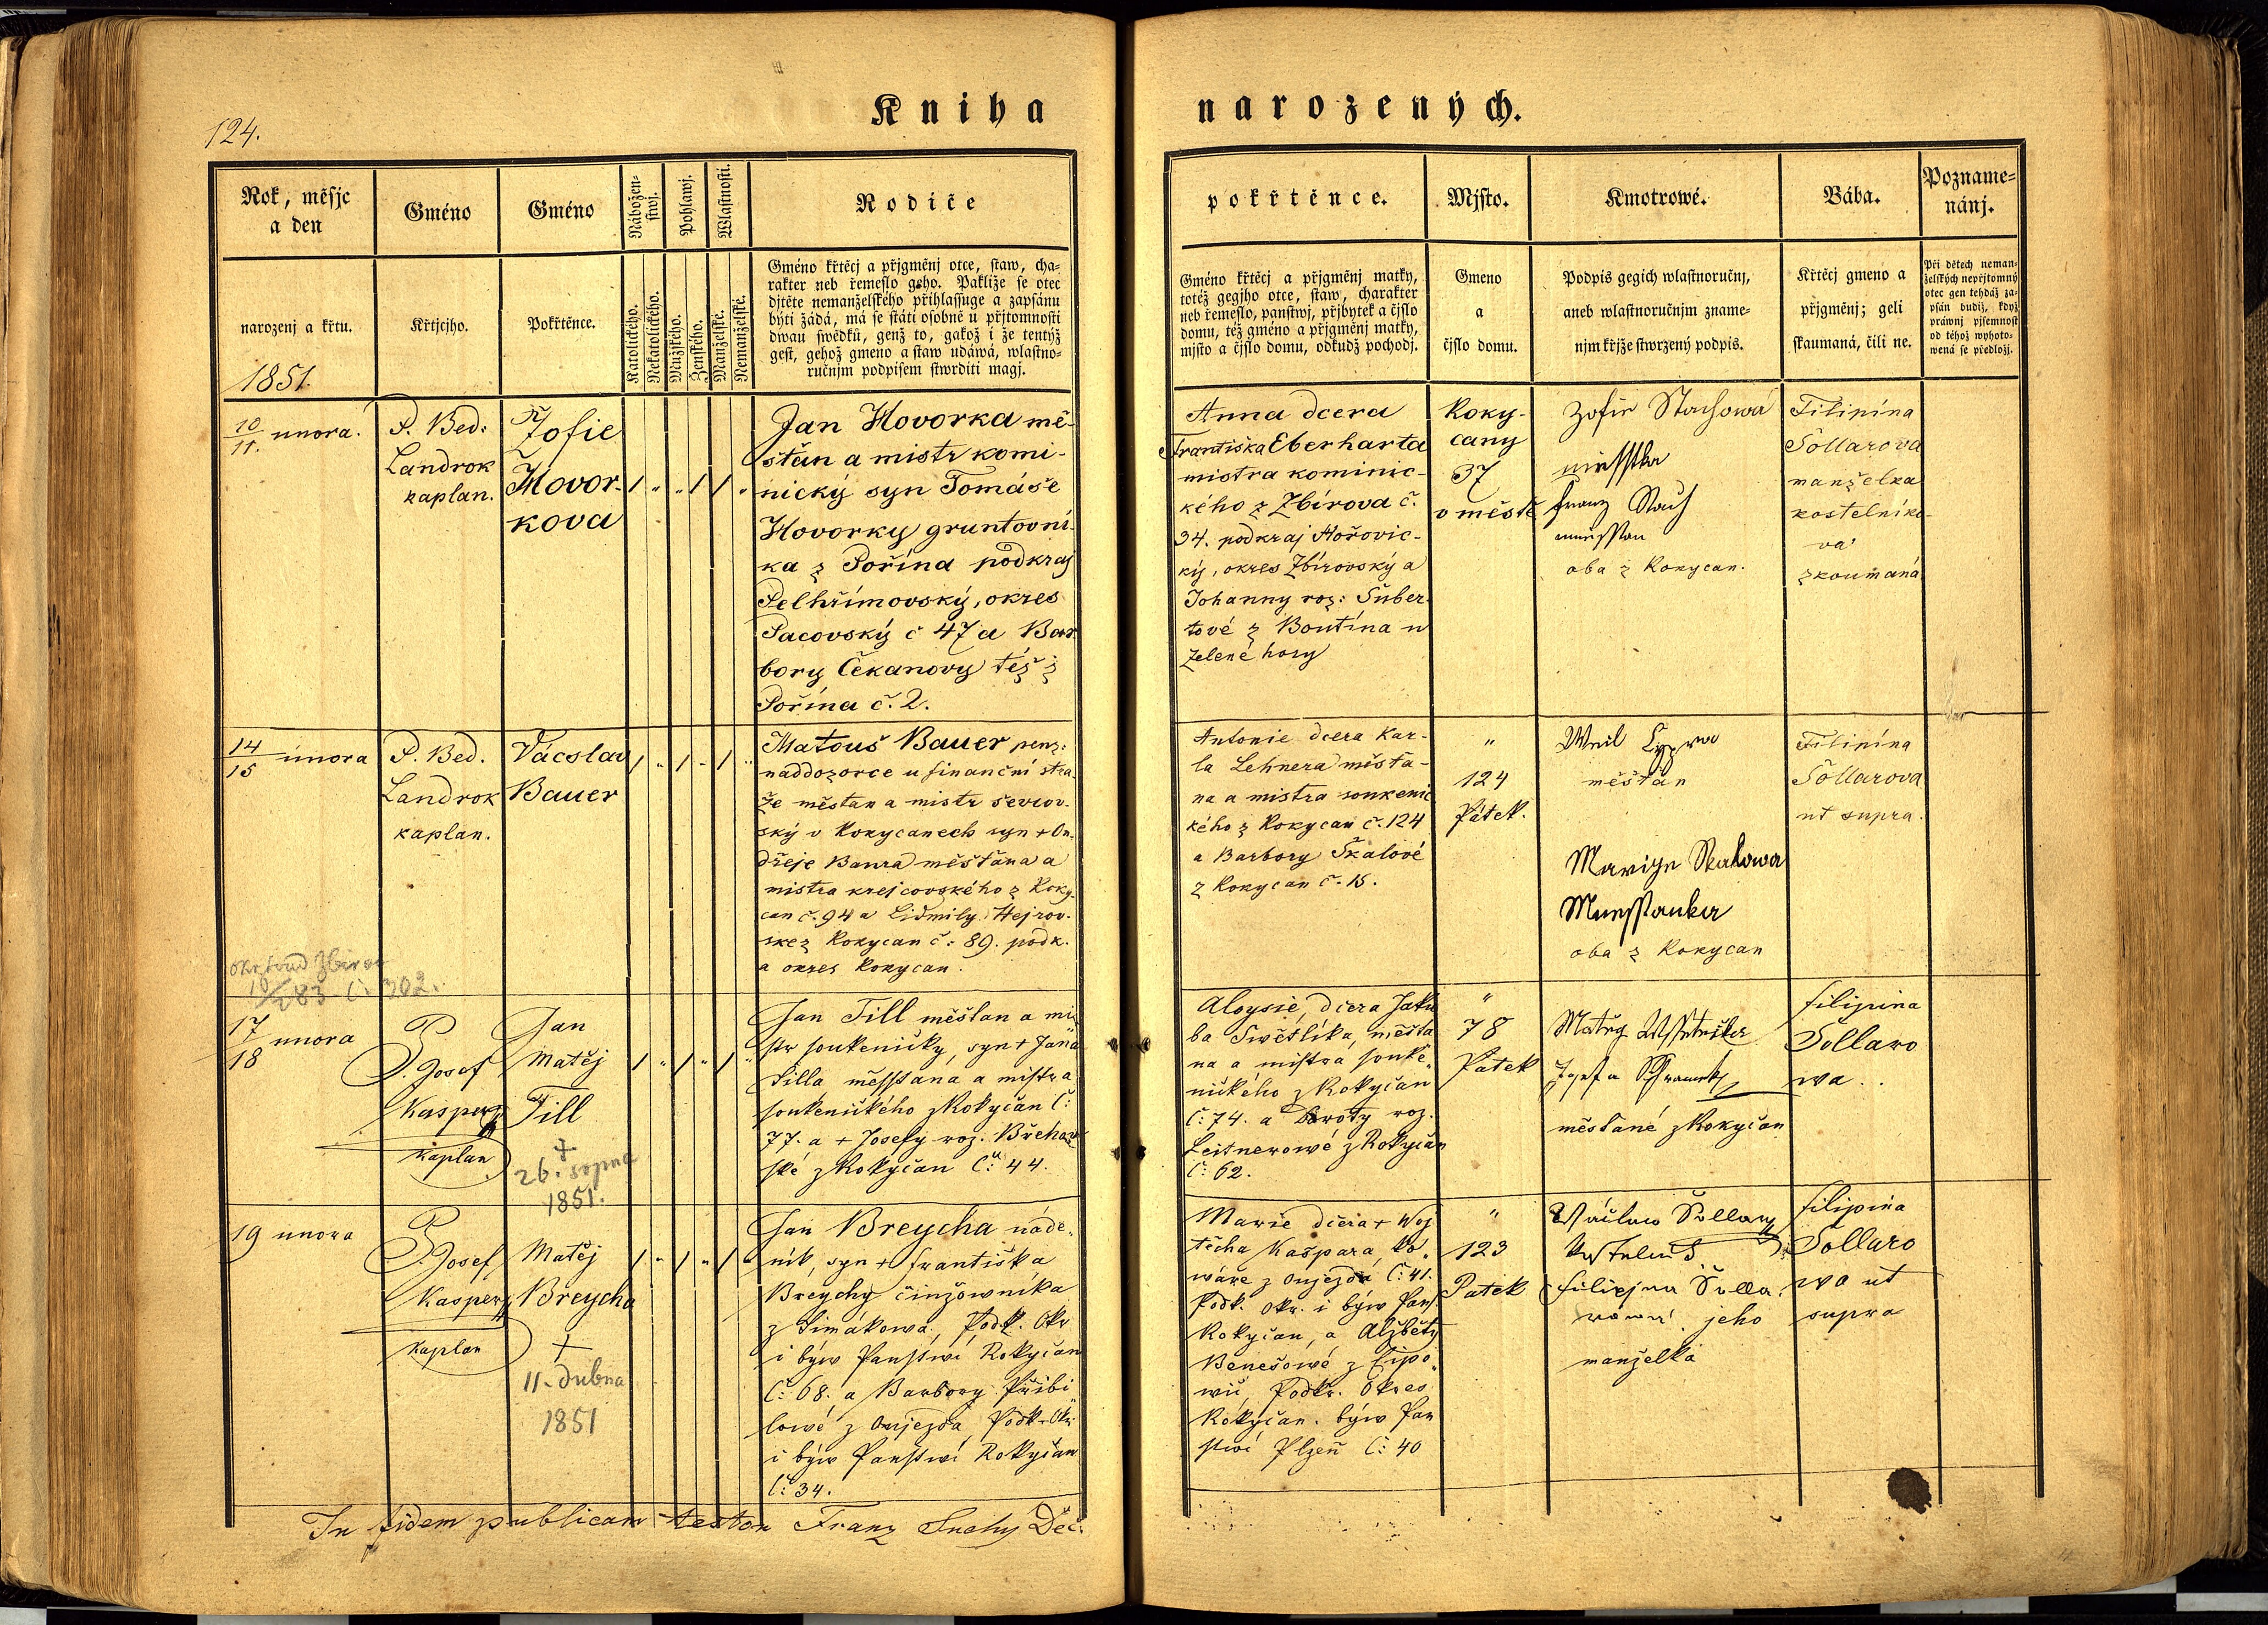 124.
Kniha narozených.
Rok, měsjc
a den
narozenj a křtu.
1851
Gméno
Křtjcjho.
Gméno
Pokřtěnce.
Nábožen-
stwj.
Katolického.
Nekatolického.
Pohlawj.
Mužského.
Ženského.
Wlastnosti.
Manželské.
Nemanželské.
Rodiče
Gméno křtěcj a přjgměnj otce, staw, cha-
rakter neb řemeslo geho. Pakliže se otec
djtěte nemanželského přihlassuge a zapsánu
býti žádá, má se státi osobně u přjtomnosti
dwau swědků, genž to, gakož i že tentýž
gest, gehož gmeno a staw udáwá, wlastno-
ručnjm podpisem stwrditi magj.
pokřtěnce.
Gméno křtěcj a přjgměnj matky,
totéž gegjho otce, staw, charakter
neb řemeslo, panstwj, přjbytek a čjslo
domu, též gméno a přjgměnj matky,
mjsto a čjslo domu, odkudž pochodj.
Mjsto.
Gmeno
a
čjslo domu.
Kmotrowé.
Podpis gegich wlastnoručnj,
aneb wlastnoručnjm zname-
njm křjže stwrzený podpis.
Bába.
Křtěcj gmeno a
přjgměnj; geli
skaumaná, čili ne.
Pozname-
nánj.
Při dětech neman-
želských nepřjtomný
otec gen tehdáž za-
psán budiž, když
práwnj pjsemnost
od téhož wyhoto-
wená se předložj.
10/11. unora.
P. Bed:
Landrok
kaplan.
Žofie
Hovor-
kova
Jan Hovorka mě-
štan a mistr komi-
nický syn Tomáše
Hovorky gruntovní-
ka z Pořína podkraj
Pelhřímovský, okres
Pacovský č 47 a Bar
bory Čekanovy též z
Pořína č. 2.
Anna dcera
Františka Eberharta
mistra kominic-
kého z Zbírova č.
34. podkraj Hořovic-
ký, okres Zbírovský a
Johanny roz: Šuber-
tové z Boutína u
Zelené hory
Roky-
cany
37
v městě
Zofie Stachowá
Franz Stach
oba z Rokycan.
Filipína
Šollarova
manželka
kostelníko-
va
zkoumaná
14/15 unora
P. Bed.
Landrok
kaplan.
Vácslav
Bauer
Matouš Bauer penz:
naddozorce u finanční strá
že měštan a mistr ševcov-
ský v Rokycanech syn + On-
dřeje Baura měštana a
mistra krejcovského z Roky-
can č. 94 a Lidmily Hejrov-
ske z Rokycan č: 89. podk.
a okres Rokycan.
Antonie dcera Kar-
la Lehnera měšta-
na a mistra soukenic
kého z Rokycan č. 124
a Barbory Škalové
z Rokycan č. 15.
"
124
Pátek.
měštan
Mariye Skalowa
Muesstanka
oba z Rokycan
Filipína
Šollarova
ut supra.
č. 302.
17/18 unora
P. Josef
Kasper
Kaplan
Jan
Matěj
Till
+
26. srpna
1851.
Jan Till měštan a mi-
str soukeničky, syn + Jana
Tilla měsstana a mistra
soukeničkého z Rokyčan č:
77. a + Josefy roz. Břehow
ské z Rokyčan č: 44.
Aloysie, dcera Jaku
ba Swětlíka, měšta
na a mistra souke-
ničkého z Rokyčan
č: 74. a Doroty roz.
Leitnerowé z Rokyčan
č: 62.
"
78
Pátek
Josef a
měštané z Rokyčan
Filipina
Šollaro
wa.
19 unora
P. Josef
Kasper
Kaplan
Matěj
Breycha
+
11. dubna
1851
Jan Breycha náde-
ník, syn + Františka
Breychy činžowníka
z Simákowa, Podk. Okr
i býw Panstwí Rokyčan
č: 68. a Barbory Přibi
lowé z Oujezda, Podk. Okr
i býw Panstwí Rokyčan
č: 34.
Marie dčera + Woj
těcha Kašpara, ko-
wáře z Oujezda č: 41.
Podk. Okr. i býw Pans
Rokyčan, a Alžběty
Benešowé z Lipo-
wic, Podkr. Okres
Rokyčan. býw Pan
stwí Plzeň č: 40
"
123
Patek
Wáclaw Šollar
Filipina Šolla-
rowa jeho
manželka
Filipina
Šollaro
wa ut
supra
In fidem publicam testor Franz Suchy Děč: